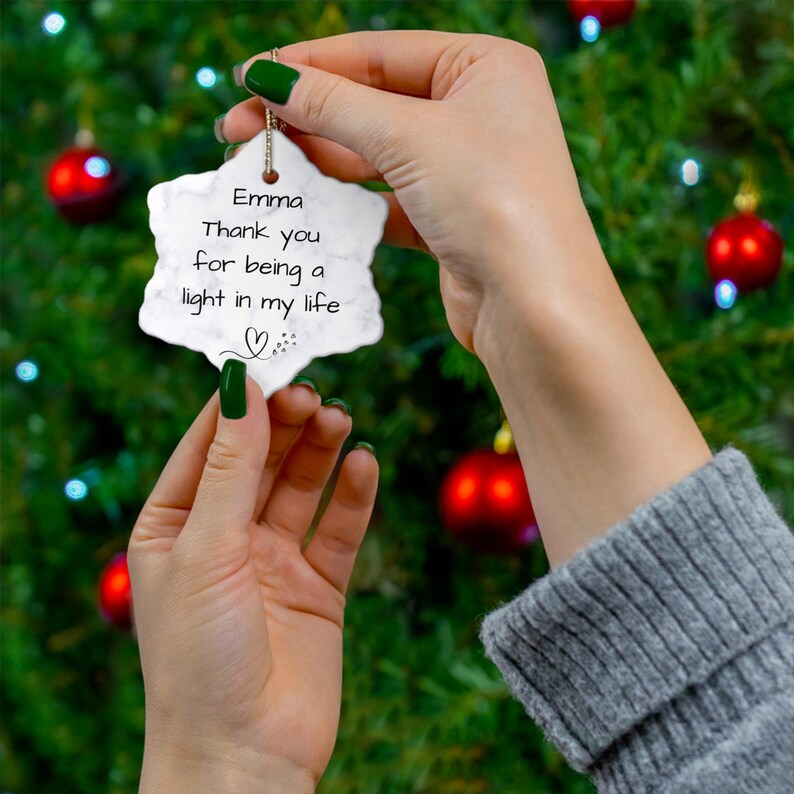 Emma
Thank you
for being a
light in my life